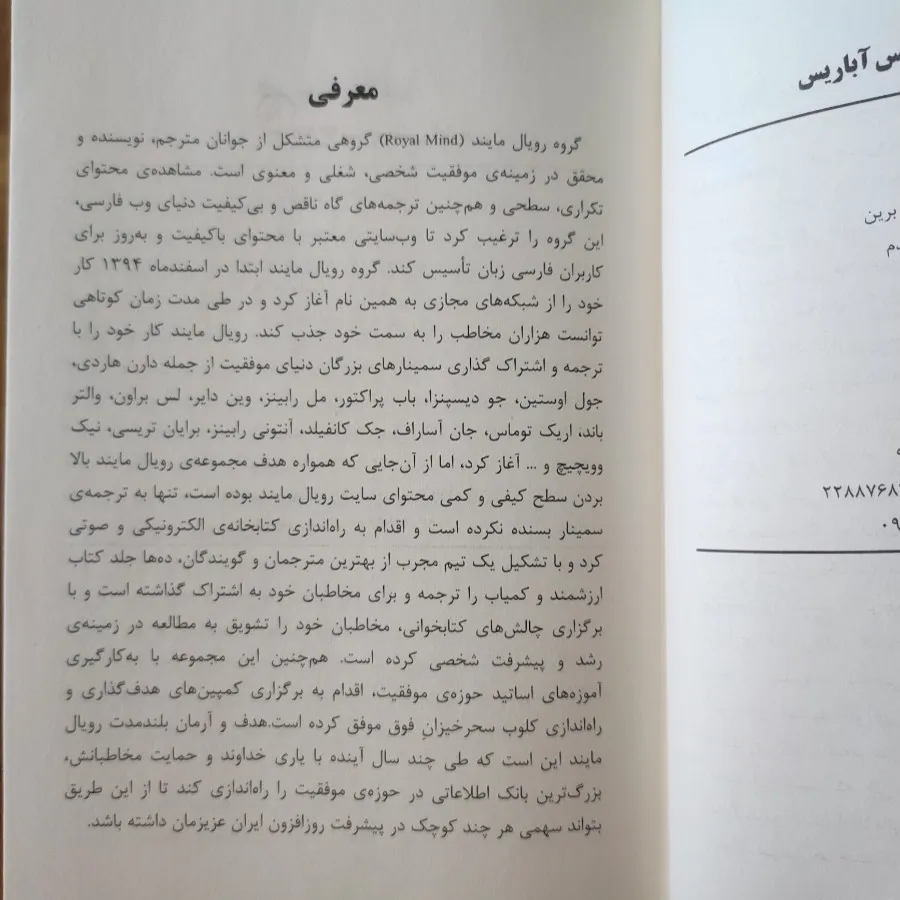 س آباریس
برین
دم
۲۲۸۸۷۶۸
۰۹
معرفی
گروه رویال مایند (Royal Mind) گروهی متشکل از جوانان مترجم، نویسنده و
محقق در زمینه‌ی موفقیت شخصی، شغلی و معنوی است. مشاهده‌ی محتوای
تکراری، سطحی و هم‌چنین ترجمه‌های گاه ناقص و بی‌کیفیت دنیای وب فارسی،
این گروه را ترغیب کرد تا وب‌سایتی معتبر با محتوای باکیفیت و به‌روز برای
کاربران فارسی زبان تأسیس کند. گروه رویال مایند ابتدا در اسفندماه ۱۳۹۴ کار
خود را از شبکه‌های مجازی به همین نام آغاز کرد و در طی مدت زمان کوتاهی
توانست هزاران مخاطب را به سمت خود جذب کند. رویال مایند کار خود را با
ترجمه و اشتراک گذاری سمینارهای بزرگان دنیای موفقیت از جمله دارن هاردی،
جول اوستین، جو دیسپنزا، باب پراکتور، مل رابینز، وین دایر، لس براون، والتر
باند، اریک توماس، جان آساراف، جک کانفیلد، آنتونی رابینز، برایان تریسی، نیک
وویچیچ و ... آغاز کرد، اما از آن‌جایی که همواره هدف مجموعه‌ی رویال مایند بالا
بردن سطح کیفی و کمی محتوای سایت رویال مایند بوده است، تنها به ترجمه‌ی
سمینار بسنده نکرده است و اقدام به راه‌اندازی کتابخانه‌ی الکترونیکی و صوتی
کرد و با تشکیل یک تیم مجرب از بهترین مترجمان و گویندگان، ده‌ها جلد کتاب
ارزشمند و کمیاب را ترجمه و برای مخاطبان خود به اشتراک گذاشته است و با
برگزاری چالش‌های کتابخوانی، مخاطبان خود را تشویق به مطالعه در زمینه‌ی
رشد و پیشرفت شخصی کرده است. هم‌چنین این مجموعه با به‌کارگیری
آموزه‌های اساتید حوزه‌ی موفقیت، اقدام به برگزاری کمپین‌های هدف‌گذاری و
راه‌اندازی کلوب سحرخیزانِ فوق موفق کرده است.هدف و آرمان بلندمدت رویال
مایند این است که طی چند سال آینده با یاری خداوند و حمایت مخاطبانش،
بزرگ‌ترین بانک اطلاعاتی در حوزه‌ی موفقیت را راه‌اندازی کند تا از این طریق
بتواند سهمی هر چند کوچک در پیشرفت روزافزون ایران عزیزمان داشته باشد.